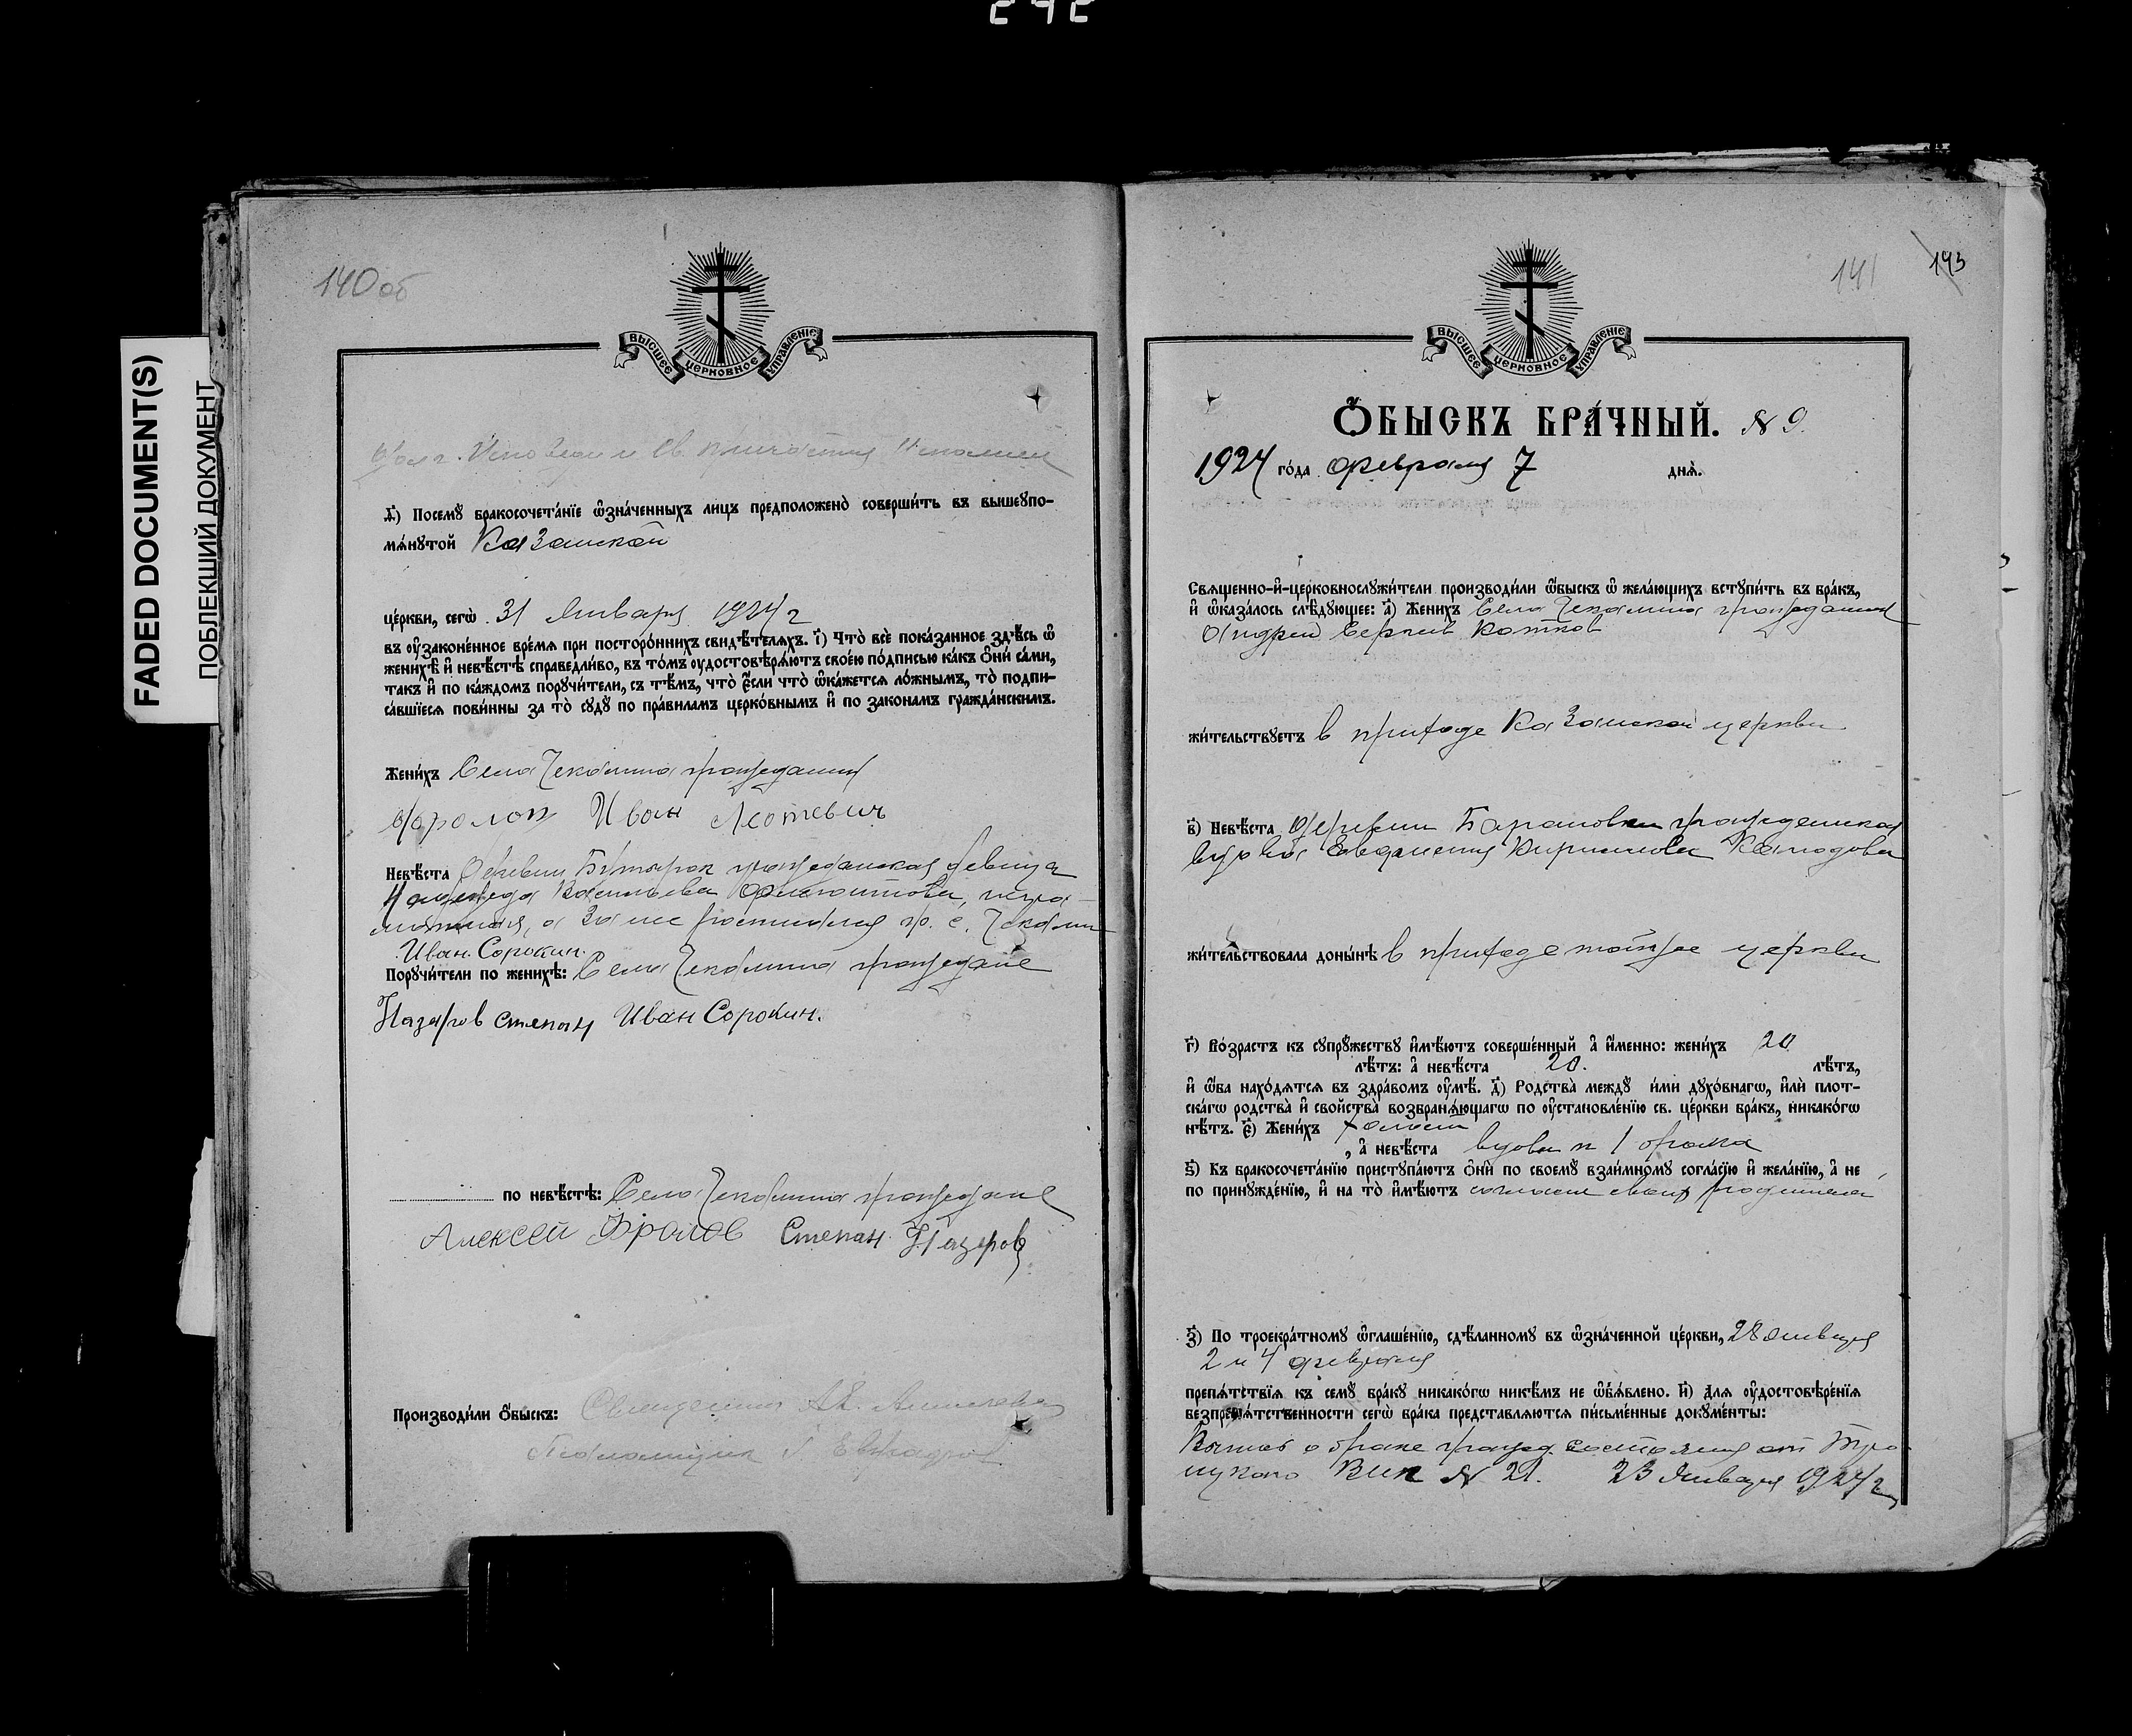 FADED DOCUMENT(S)
ПОБЛЕКШИЙ ДОКУМЕНТ
140 об
ВЫСШЕЕ ЦЕРКОВНОЕ УПРАВЛЕНІЕ
долг Исповеди и Св. Причастия
д҃) Посемꙋ бракосочета́нїе ѡ҆зна́ченныхъ лицъ предположено̀ соверши́ть въ вышеꙋпо-
мѧ́нꙋтой Казанской
це́ркви, сегѡ̀ 31 Января 1924 г
въ оу҆законе́нное вре́мѧ при посторо́ннихъ свидѣ́телѧхъ. і҃) Что̀ всѐ пока́занное здѣ́сь ѡ҆
женихѣ̀ и҆ невѣ́стѣ справедли́во, въ то́мъ оу҆достовѣрѧ́ютъ свое́ю по́дписью ка́къ ѻ҆нѝ са́ми,
та́къ и҆ по ка́ждомъ порꙋчи́тели, съ тѣ́мъ, что̀ є҆́сли что̀ ѡ҆ка́жетсѧ ло́жнымъ, то̀ подпи-
са́вшїесѧ пови́нны за то̀ сꙋдꙋ̀ по пра́виламъ церко́внымъ и҆ по зако́намъ гражда́нскимъ.
Жени́хъ Села Чекалина гражданин
Фролов Иван
Невѣ́ста Деревни Бутырок гражданская девица
Васильева
а за нее расписался гр. с. Чекалин
Иван Сорокин.
Порꙋчи́тели по женихѣ̀: Села Чекалина граждане
Назаров Степан Иван Сорокин.
по невѣ́стѣ: Села Чекалина граждане
Алексей Фролов Степан Назаров
Производи́ли Ѻ҆́быскъ: Священник
Псаломщик
141 143
ВЫСШЕЕ ЦЕРКОВНОЕ УПРАВЛЕНІЕ
Ѻ҆́БЫСКЪ БРА́ЧНЫЙ. № 9.
1924 го́да февраля 7 днѧ̀.
Свѧще́нно-и҆-церковнослꙋжи́тели производи́ли ѻ҆́быскъ ѡ҆ жела́ющихъ встꙋпи́ть въ бра́къ,
и҆ ѡ҆каза́лось слѣ́дꙋющее: а҃) Жени́хъ Села Чекалина гражданин
Андрей Сергеев Котков
жи́тельствꙋетъ в приходе Казанской церкви
в҃) Невѣ́ста Деревни Барановки гражданская
вдова Евдокия Кириллова
жи́тельствовала доны́нѣ в приходе той же церкви
г҃) Во́зрастъ къ сꙋпрꙋ́жествꙋ и҆мѣ́ютъ соверше́нный а҆ и҆́менно: жени́хъ 20
лѣ́тъ: а҆ невѣ́ста 20. лѣ́тъ,
и҆ ѻ҆́ба нахо́дѧтсѧ въ здра́вомъ оу҆мѣ̀. д҃) Родства̀ междꙋ̀ и́ми дꙋхо́внагѡ, и҆лѝ плот-
ска́гѡ родства̀ и҆ сво́йства̀ возбранѧ́ющагѡ по оу҆становле́нїю св. це́ркви бра́къ, никако́гѡ
нѣ́тъ. є҃) Жени́хъ холост
, а҆ невѣ́ста вдова п 1 брака
ѕ҃) Къ бракосочета́нїю пристꙋпа́ютъ ѻ҆нѝ по своемꙋ̀ взаи́мномꙋ согла́сїю и҆ жела́нїю, а҆ не
по принꙋжде́нїю, и҆ на то̀ и҆мѣ́ютъ согласие своих родителей
з҃) По троекра́тномꙋ ѡ҆глаше́нїю, сдѣ́ланномꙋ въ ѡ҆зна́ченной це́ркви, 28 января
2 и 4 февраля
препѧ́тствїѧ къ семꙋ̀ бра́кꙋ никако́гѡ никѣ́мъ не ѡ҆бꙗ́влено. и҃) Для оу҆достовѣре́нїѧ
безпрепѧ́тственности сегѡ̀ бра́ка представлѧ́ютсѧ пи́сьменные докꙋме́нты:
о браке гражд. состояния от Тро
ицкого Вик № 21. 23 Января 1924 г